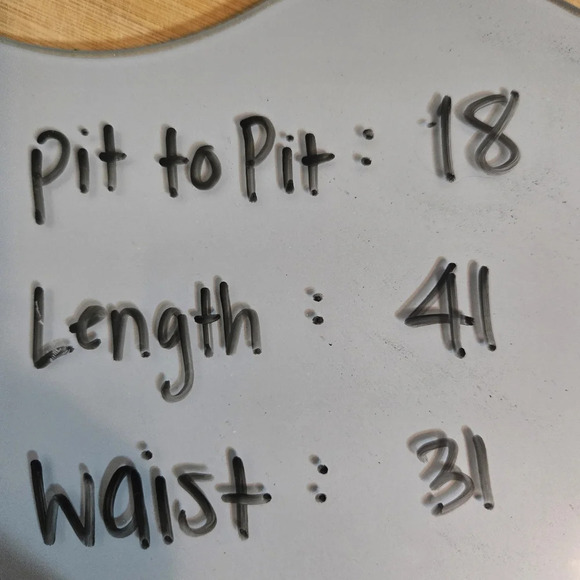 pit to Pit : 18
Length : 41
Waist : 31